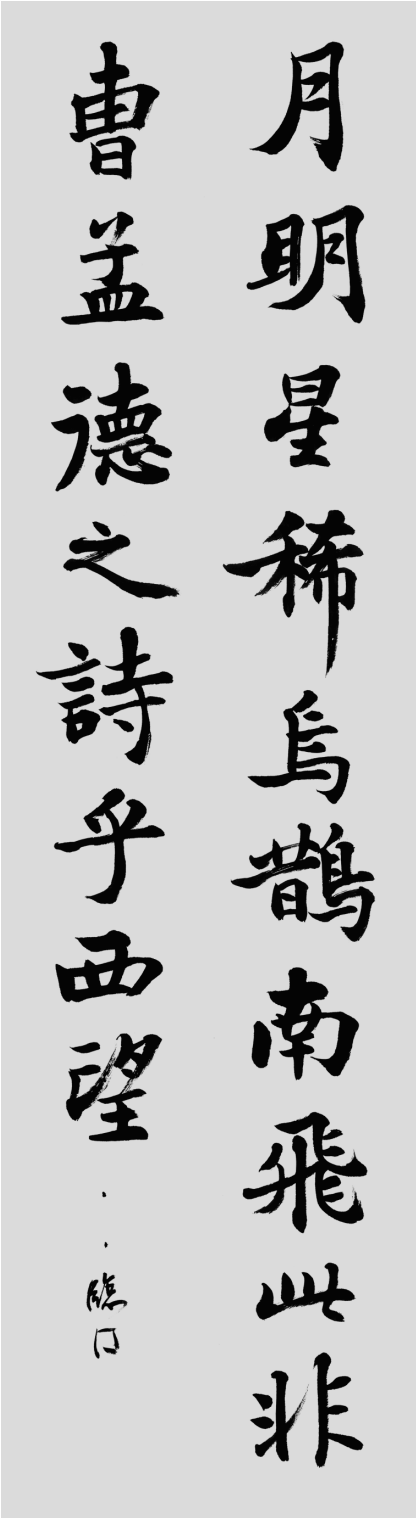 月明星稀烏鵲南飛此非
曹孟德之詩乎西望
臨